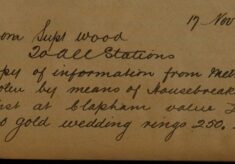 17 Nov
om Supt Wood
To All Stations
py of information from Met
olen by means of Housebreak
st at Clapham value
o gold wedding rings 250.